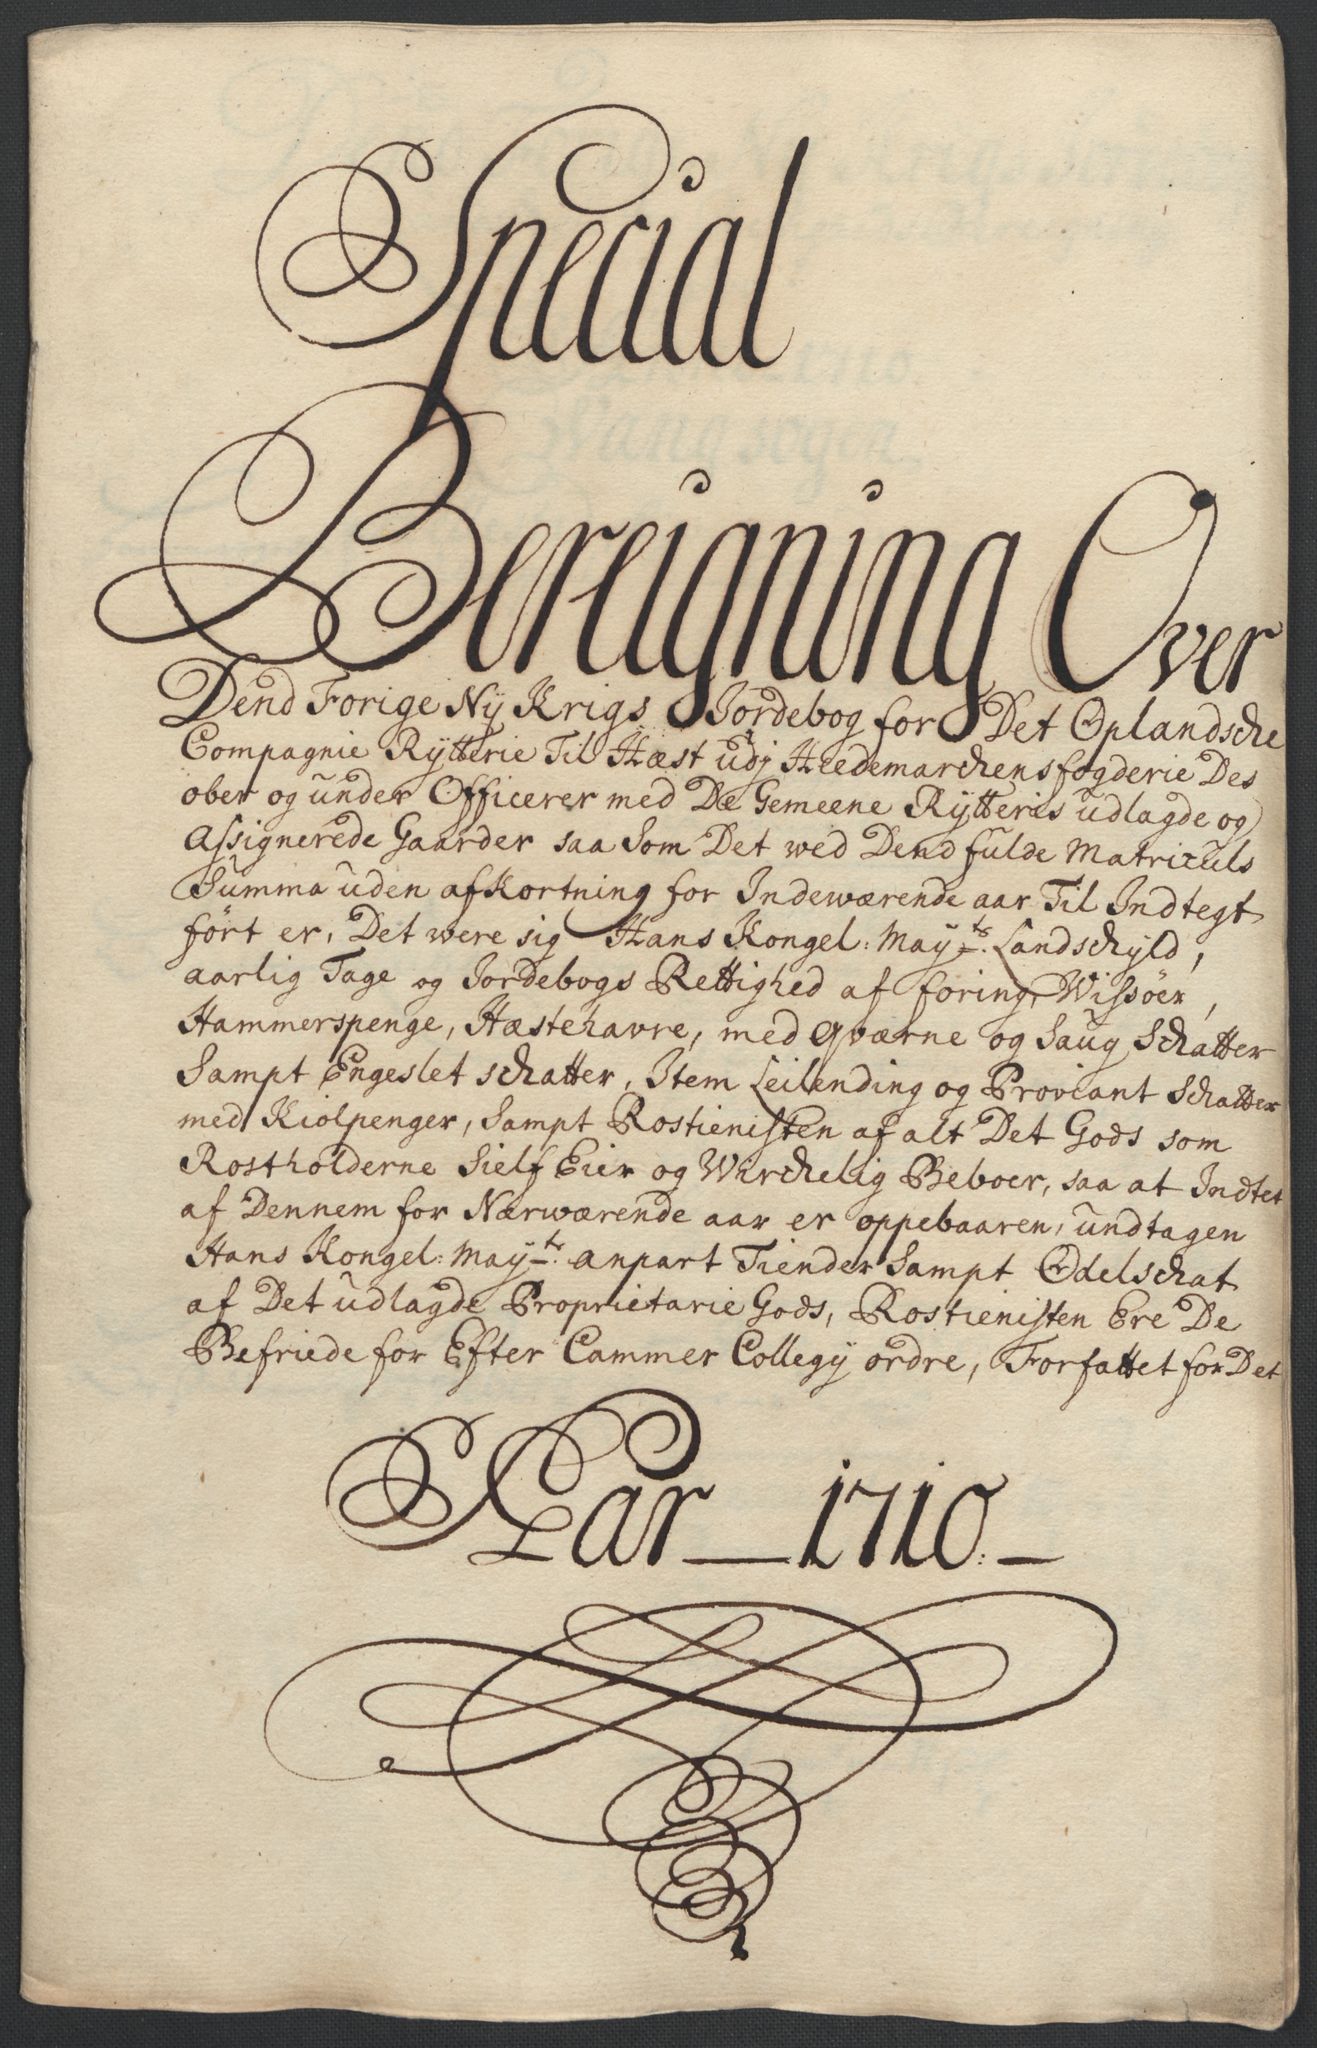 Special
Bereigning Over
Dend Forige Ny Krigs Jordebog for Det Oplandsche
Compagnie Rytterie Til Hæst udj Hedemarchens fogderie Des
ober og under Officerer med De Gemeene Rytteris udlagde og
Assignerede Gaarder saa Som Det wed Dend fulde Matriculs
Summa uden afkortning for Indewærende aar Til Indtegt
ført er, Det were sig Hans Kongel: May:ts Landschyld,
aarlig Tage og Jordebogs Rettighed af foring, Wissøer,
Hammerspenge, Hæstehavre, med Qværne og Saug Schatter
Sampt Engeslet schatter, Item Leilending og Proviant Schatter
med Kiolpenger, Sampt Rostienisten af alt Det Gods som
Rostholderne Sielf Eier og Wirchelig Beboer, saa at Indtet
af Dennem for Nærwærende aar er oppebaaren, undtagen
Hans Kongel: May:ts anpart Tiender Sampt Odelschat
af Det udlagde Proprietarie Gods, Rostienisten Ere De
Befriede for Efter Cammer Collegy ordre, Forfattet for Det
Aar 1710.